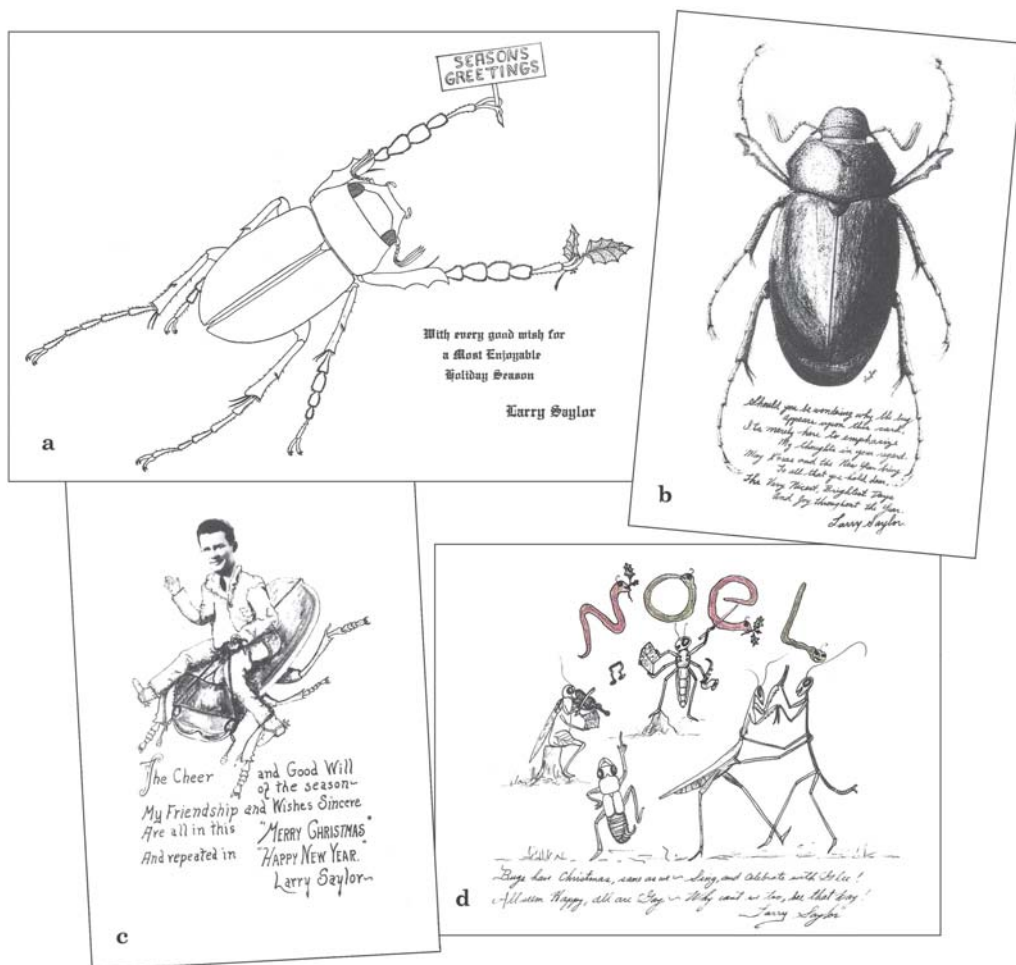 SEASONS
GREETINGS
With every good wish for
a Most Enjoyable
Holiday Season
Larry Saylor
a
Should you be wondering why this bug
Appears upon this card.
Its merely here to emphasize
My thoughts in your regard.
May Xmas and the New Year bring
To all that you hold dear,
The Very Nicest, Brightest Days
And Joy throughout the Year.
Larry Saylor
b
The Cheer and Good Will
of the season~
My Friendship and Wishes Sincere
Are all in this "MERRY CHRISTMAS"
And repeated in "HAPPY NEW YEAR."
Larry Saylor~
c
NOEL
Bugs have Christmas, same as we ~ Sing, and Celebrate with Glee!
All seem Happy, all are Gay ~ Why can't we too, be that way!
~Larry Saylor
d